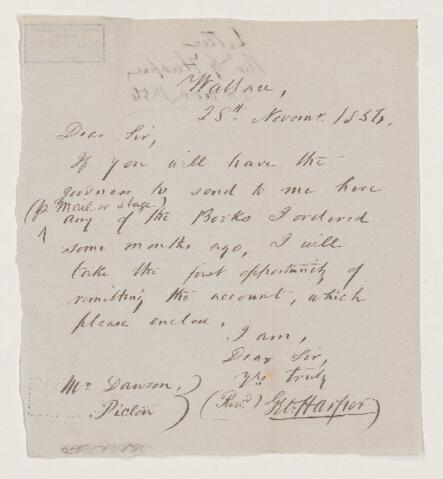 Wallace,
28th Novemr. 1856.
Dear Sir,
If you will have the
goodness to send to me here
(pr mail or stage)
any of the Books I ordered
some months ago, I will
take the first opportunity of
remitting the account, which
please enclose.
I am,
Dear Sir,
Yrs truly
(Revd.) Geo. Harper
Mr. Dawson,
Pictou